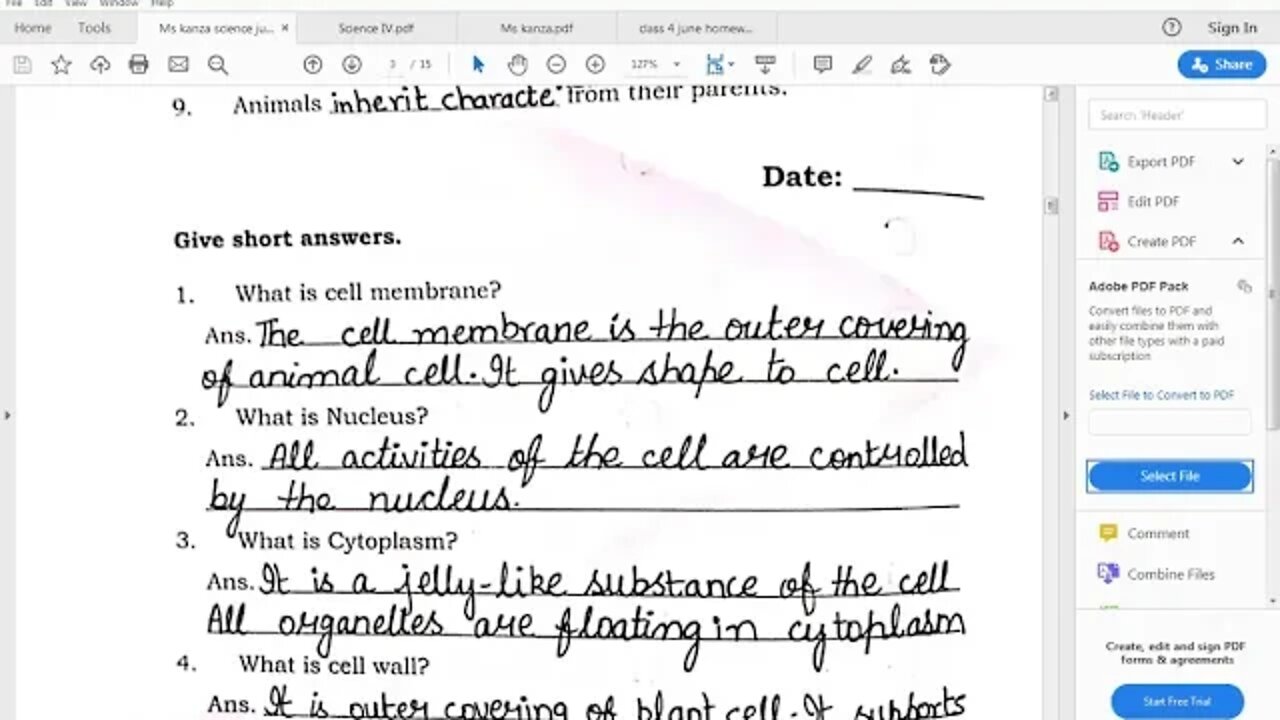 File Edit View Window Help
Home Tools Ms kanza science ju... × Science IV.pdf Ms kanza.pdf class 4 june homew... Sign In
3 / 15 127% Share
9. Animals inherit characte from their parents.
Date:
Give short answers.
1. What is cell membrane?
Ans. The cell membrane is the outer covering
of animal cell. It gives shape to cell.
2. What is Nucleus?
Ans. All activities of the cell are controlled
by the nucleus.
3. What is Cytoplasm?
Ans. It is a jelly-like substance of the cell
All organelles are floating in cytoplasm
4. What is cell wall?
Ans. It is outer covering of plant cell. It supports
Search 'Header'
Export PDF
Edit PDF
Create PDF
Adobe PDF Pack
Convert files to PDF and
easily combine them with
other file types with a paid
subscription
Select File to Convert to PDF
Select File
Comment
Combine Files
Create, edit and sign PDF
forms & agreements
Start Free Trial